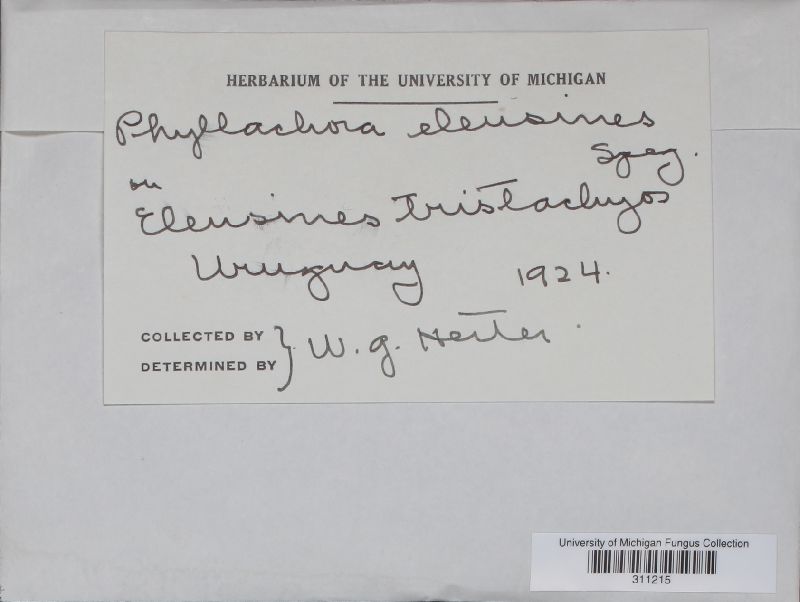 HERBARIUM OF THE UNIVERSITY OF MICHIGAN
Phyllachora eleusines
Speg.
on
Eleusines tristachyos
Uruguay 1924.
COLLECTED BY
DETERMINED BY } W. G. Herter.
University of Michigan Fungus Collection
311215